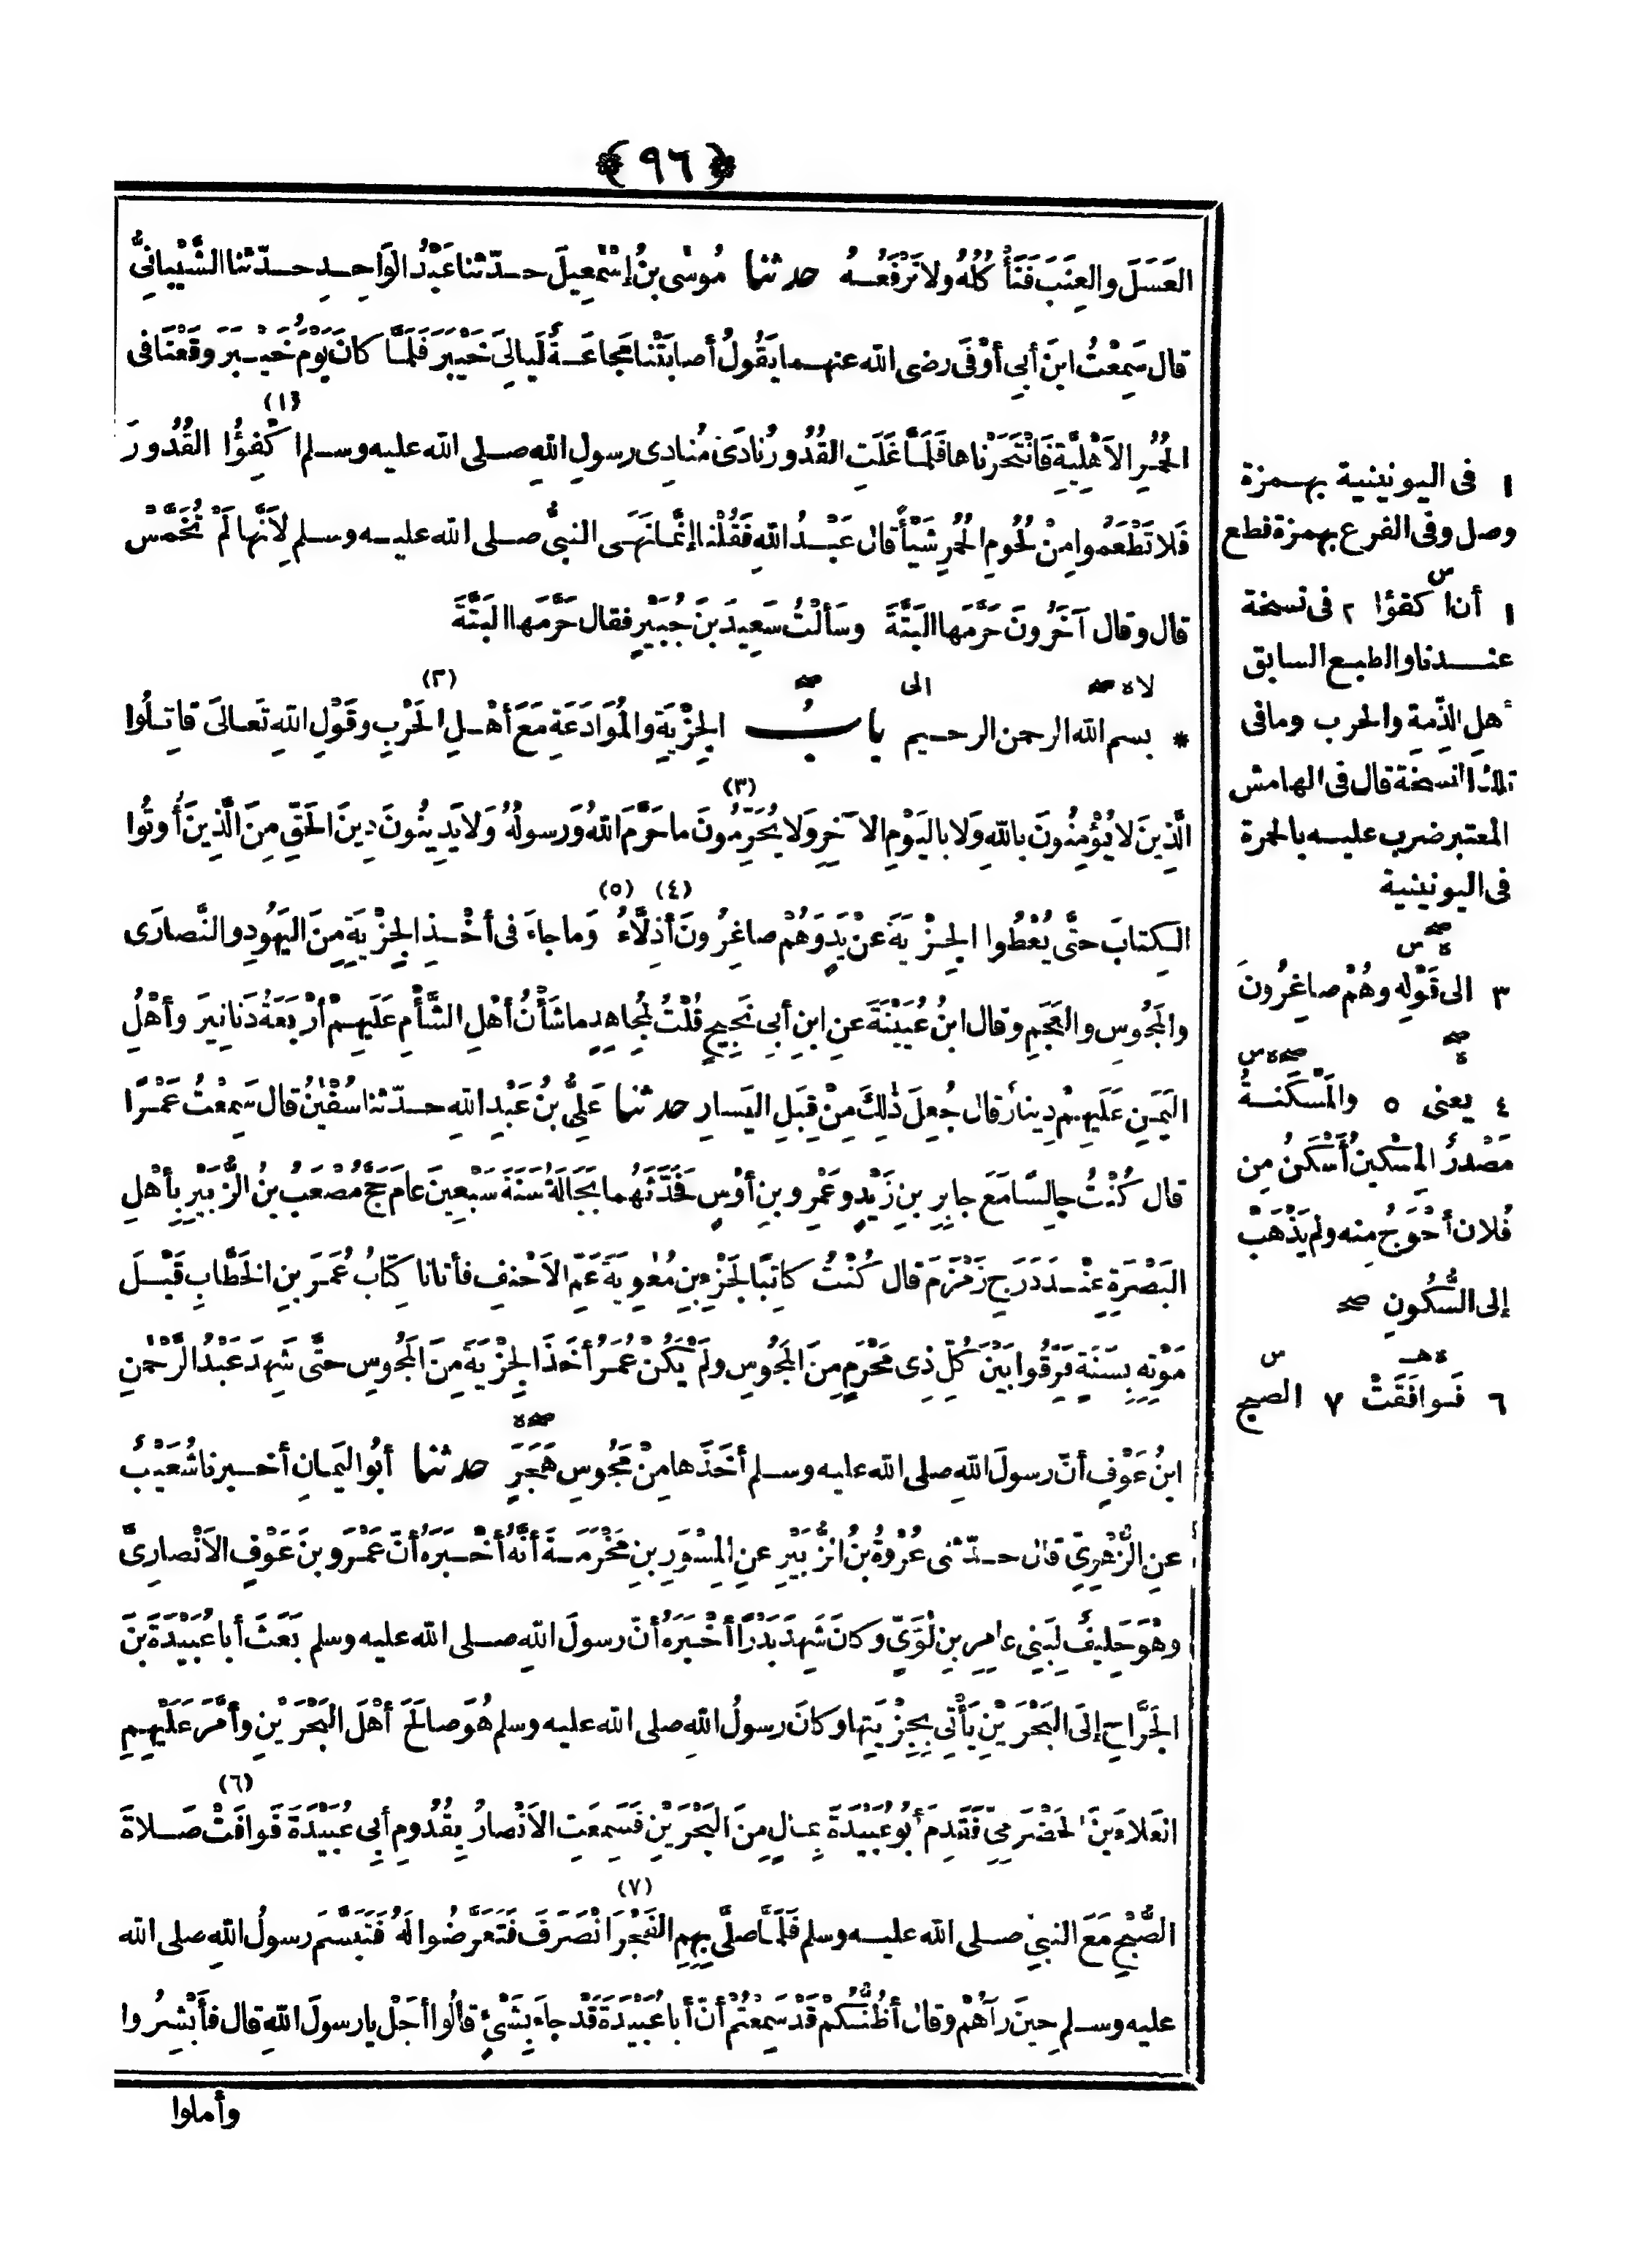 ﴿٩٦﴾
العَسَلَ والعِنَبَ فَنَأْكُلُهُ ولا نَرْفَعُهُ حدثنا مُوسَى بنُ إسْمٰعِيلَ حدّثنا عَبْدُ الوَاحِدِ حدّثنا الشَّيْبانِىُّ
قال سَمِعْتُ ابنَ أبِى أوْفَى رضى الله عنهما يَقُولُ أصابَتْنا مَجاعَةٌ لَيالِىَ خَيْبَرَ فَلَمَّا كانَ يَوْمُ خَيْبَرَ وقَعْنا فى
(١)
الحُمُرِ الاَهْلِيَّةِ فَانْتَحَرْناها فَلَمَّا غَلَتِ القُدُورُ نادَى مُنادِى رسولِ اللهِ صلى الله عليه وسلم اكْفِؤُا القُدُورَ
فَلا تَطْعَمُوا مِنْ لُحُومِ الحُمُرِ شَيْأً قال عَبْدُ اللهِ فَقُلْنا إنَّمَا نَهَى النبىُّ صلى الله عليه وسلم لِاَنَّها لَمْ تُخَمَّسْ
قال وقال آخَرُونَ حَرَّمَها البَتَّةَ وسَأَلْتُ سَعِيدَ بنَ جُبَيْرٍ فقال حَرَّمَها البَتَّةَ
لا ه صح الى صح (٢)
* بسم الله الرحمن الرحيم بابُ الجِزْيَةِ والمُوَادَعَةِ مَعَ أهْلِ الحَرْبِ وقَوْلِ اللهِ تَعالَى قاتِلُوا
(٣)
الَّذِينَ لا يُؤْمِنُونَ باللهِ وَلا باليَوْمِ الآخِرِ وَلا يُحَرِّمُونَ ما حَرَّمَ اللهُ وَرسولُهُ وَلا يَدِينُونَ دِينَ الحَقِّ مِنَ الَّذِينَ أُوتُوا
(٤) (٥)
الكِتابَ حتَّى يُعْطُوا الجِزْيَةَ عنْ يَدٍ وَهُمْ صاغِرُونَ أذِلَّاءُ وَما جاءَ فى أخْذِ الجِزْيَةِ مِنَ اليَهُودِ والنَّصارَى
والمَجُوسِ والعَجَمِ وقال ابنُ عُيَيْنَةَ عنِ ابنِ أبِى نَجِيحٍ قُلْتُ لِمُجاهِدٍ ما شَأْنُ أهْلِ الشَّأْمِ عَلَيهِمْ أرْبَعَةُ دَنانِيرَ وأهْلُ
اليَمَنِ عَلَيهِمْ دِينارٌ قال جُعِلَ ذٰلِكَ مِنْ قِبَلِ اليَسارِ حدثنا عَلِىُّ بنُ عَبْدِ اللهِ حدّثنا سُفْيٰنُ قال سَمِعْتُ عَمْرًا
قال كُنْتُ جالِسًا مَعَ جابِرِ بنِ زَيْدٍ وعَمْرِو بنِ أوْسٍ فَحَدَّثَهُما بَجَالَةُ سَنَةَ سَبْعِينَ عامَ حَجَّ مُصْعَبُ بنُ الزُّبَيْرِ بِأهْلِ
البَصْرَةِ عِنْدَ دَرَجِ زَمْزَمَ قال كُنْتُ كاتِبًا لِجَزْءِ بنِ مُعٰوِيَةَ عَمِّ الاَحْنفِ فأتانا كِتابُ عُمَرَ بنِ الخَطَّابِ قَبْلَ
مَوْتِهِ بِسَنَةٍ فَرِّقُوا بَيْنَ كُلِّ ذِى مَحْرَمٍ مِنَ المَجُوسِ ولَمْ يَكُنْ عُمَرُ أخَذَ الجِزْيَةَ مِنَ المَجُوسِ حتَّى شَهِدَ عَبْدُ الرَّحْمٰنِ
صح ه
ابنُ عَوْفٍ أنّ رسولَ اللهِ صلى الله عليه وسلم أخَذَها مِنْ مَجُوسِ هَجَرَ حدثنا أبُو اليَمانِ أخبرنا شُعَيْبٌ
عنِ الزُّهْرِىِّ قال حدّثنى عُرْوَةُ بنُ الزُّبَيْرِ عنِ المِسْوَرِ بنِ مَخْرَمَةَ أنَّهُ أخْبَرَهُ أنّ عَمْرَو بنَ عَوْفٍ الاَنْصارِىَّ
وهْوَ حَلِيفٌ لِبَنِى عامِرِ بنِ لُؤَىٍّ وكانَ شَهِدَ بَدْرًا أخْبَرَهُ أنّ رسولَ اللهِ صلى الله عليه وسلم بَعَثَ أبا عُبَيْدَةَ بنَ
الجَرَّاحِ إلَى البَحْرَيْنِ يَأْتِى بِجِزْيَتِها وكانَ رسولُ اللهِ صلى الله عليه وسلم هُوَ صالَحَ أهْلَ البَحْرَيْنِ وأمَّرَ عَلَيْهِمِ
(٦)
العَلاءَ بنَ الحَضْرَمِىِّ فَقَدِمَ أبُو عُبَيْدَةَ بِمالٍ مِنَ البَحْرَيْنِ فَسَمِعَتِ الاَنْصارُ بِقُدُومِ أبِى عُبَيْدَةَ فَوافَتْ صَلاةَ
(٧)
الصُّبْحِ مَعَ النبىِّ صلى الله عليه وسلم فَلَمَّا صلَّى بِهِمِ الفَجْرَ انْصَرَفَ فَتَعَرَّضُوا لَهُ فَتَبَسَّمَ رسولُ اللهِ صلى الله
عليه وسلم حِينَ رَآهُمْ وقال أظُنُّكُمْ قَدْ سَمِعْتُمْ أنّ أبا عُبَيْدَةَ قَدْ جاءَ بِشَىْءٍ قالُوا أجَلْ يا رسولَ اللهِ قال فأَبْشِرُوا
وأملوا
١ فى اليونينية بهمزة
وصل وفى الفرع بهمزة قطع
س
١ أن اكفؤا ٢ فى نسخة
عندنا والطبع السابق
أهلِ الذِّمةِ والحرب وما فى
تلك النسخة قال فى الهامش
المعتبر ضرب عليه بالحمرة
فى اليونينية
صح ه س
٣ الى قَوْلِهِ وهُمْ صاغِرُونَ
صح ه صح ه س
٤ يعنى ٥ والمَسْكَنةُ
مَصْدرُ المِسْكِينِ أَسْكَنُ مِن
فُلانٍ أحْوَجُ منه ولم يَذْهَبْ
إلى السُّكُونِ صح
ه س
٦ فَوافَقَتْ ٧ الصبح